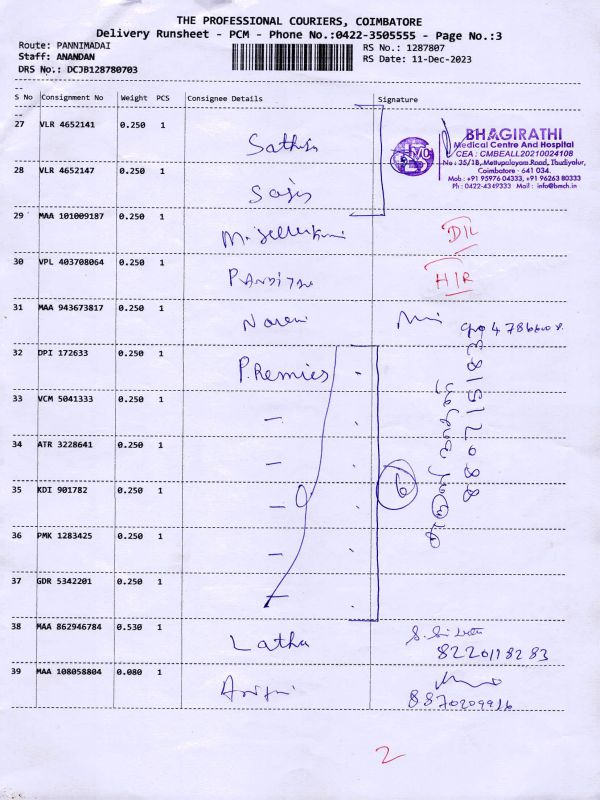 THE PROFESSIONAL COURIERS, COIMBATORE
Delivery Runsheet - PCM - Phone No.:0422-3505555 - Page No.:3
Route: PANNIMADAI
RS No.: 1287807
Staff: ANANDAN
RS Date: 11-Dec-2023
DRS No.: DCJB128780703
S No Consignment No Weight PCS Consignee Details Signature
27 VLR 4652141 0.250 1 Sathish
BHAGIRATHI
Medical Centre And Hospital
CEA : CMBEALL20210024108
No : 35/1B, Mettupalayam Road, Thudiyalur,
Coimbatore - 641 034.
Mob : +91 95976 04333, +91 96263 80333
Ph : 0422-4349333 Mail : info@bmch.in
28 VLR 4652147 0.250 1
29 MAA 101009187 0.250 1 D/L
30 VPL 403708064 0.250 1 H/R
31 MAA 943673817 0.250 1 Naren
32 DPI 172633 0.250 1 P.Remies
33 VCM 5041333 0.250 1 -
34 ATR 3228641 0.250 1 -
35 KDI 901782 0.250 1 - 6
36 PMK 1283425 0.250 1 -
37 GDR 5342201 0.250 1
38 MAA 862946784 0.530 1 Latha
8220118283
39 MAA 108058804 0.080 1
8870209916
2